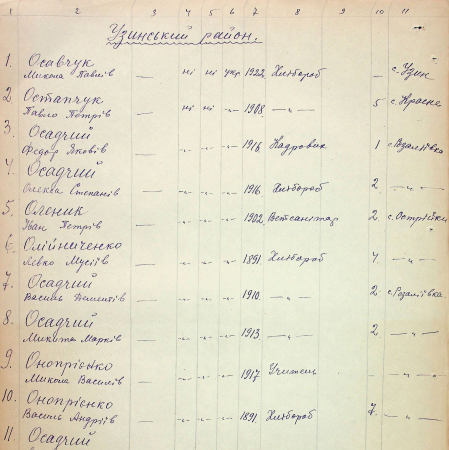 1 2 3 4 5 6 7 8 9 10 11
Узинський район.
1. Осавчук
Микола Павлів — ні ні укр 1922 Хлібороб — с. Узин
2. Остапчук
Павло Петрів — ні ні -„- 1908 —„— 5 с. Красне
3. Осадчий
Федор Яковів — -„- -„- -„- 1916 Кадровик 1 с. Розаліївка
4. Осадчий
Олекса Степанів — -„- -„- -„- 1916 Хлібороб 2 —„—
5. Оленик
Іван Петрів — -„- -„- -„- 1902 Ветсанітар 2 с. Острійки
6. Олійниченко
Левко Мусіїв — -„- -„- -„- 1891 Хлібороб 4 —„—
7. Осадчий
Василь Дементів — -„- -„- -„- 1910 —„— 2 с. Розаліївка
8. Осадчий
Микита Марків — -„- -„- -„- 1913 —„— 2 —„—
9. Онопрієнко
Микола Василів — -„- -„- -„- 1917 Учитель — —„—
10. Онопрієнко
Василь Андріїв — -„- -„- -„- 1891 Хлібороб 7 —„—
11. Осадчий